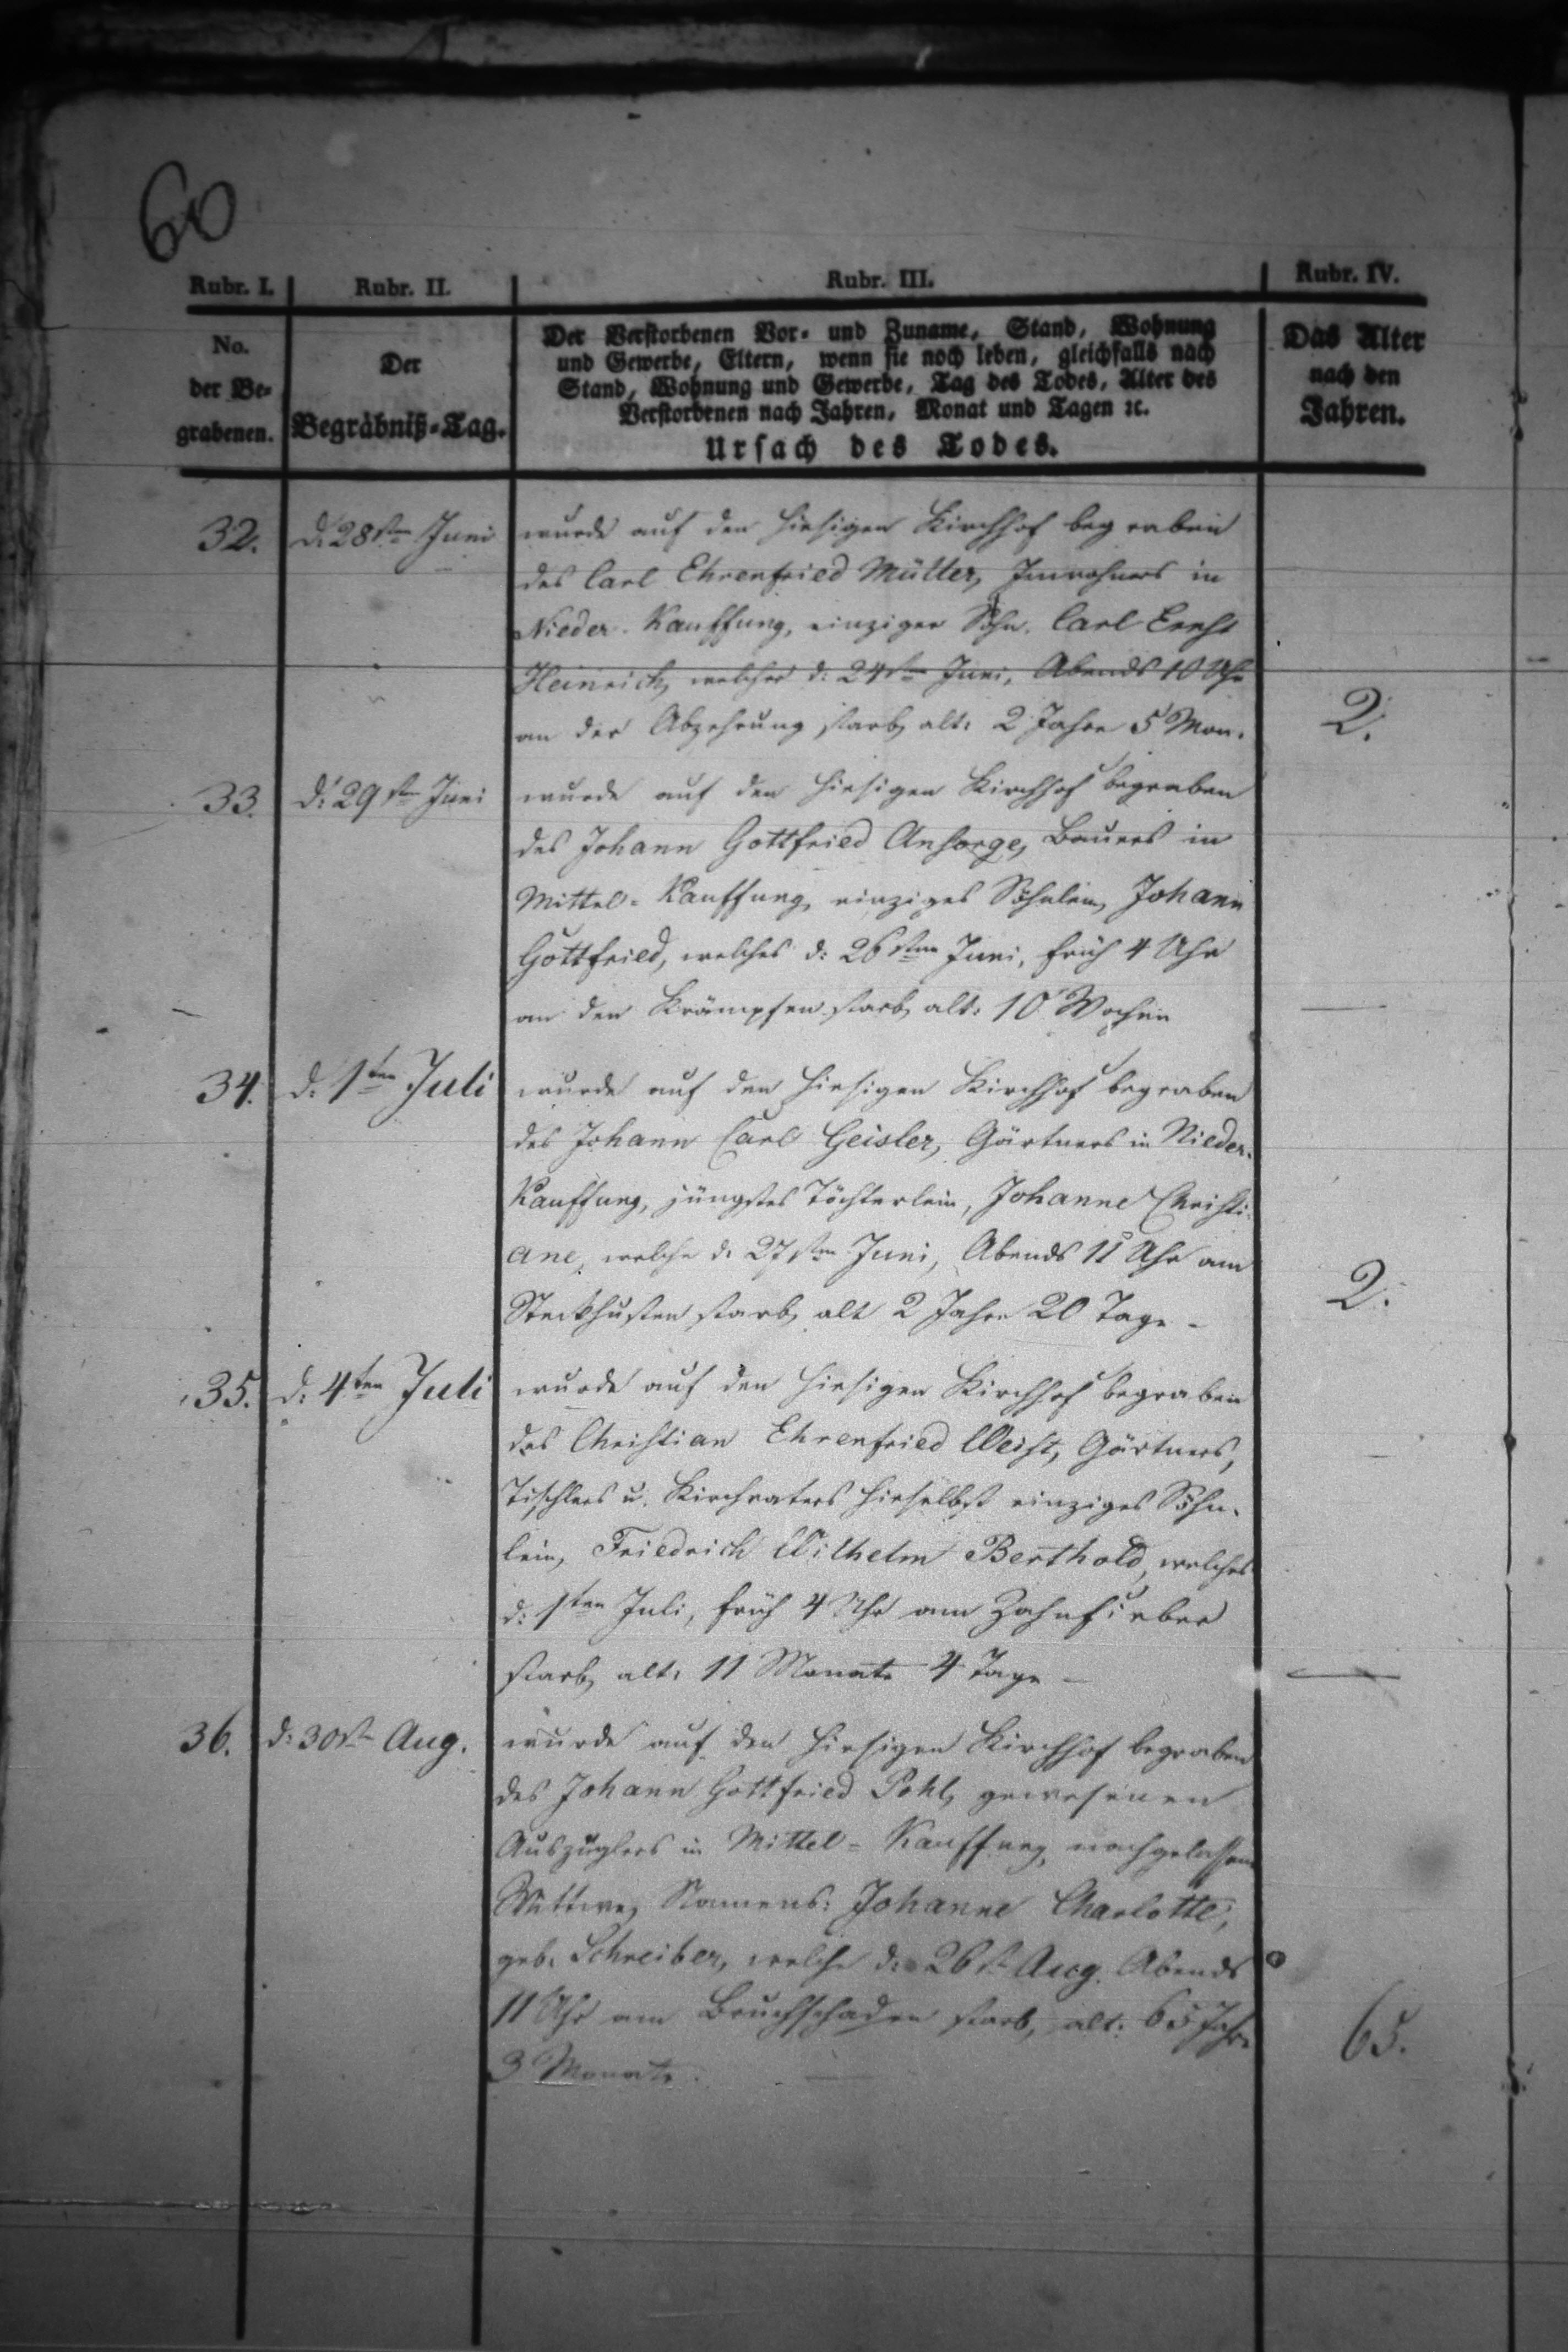 60
Rubr. I. Rubr. II. Rubr. III. Rubr. IV.
No. der Be- grabenen.
Der Begräbniß-Tag.
Der Verstorbenen Vor- und Zuname, Stand, Wohnung
und Gewerbe, Eltern, wenn sie noch leben, gleichfalls nach
Stand, Wohnung und Gewerbe, Tag des Todes, Alter des
Verstorbenen nach Jahren, Monat und Tagen ꝛc.
Ursach des Todes.
Das Alter
nach den
Jahren.
32. d. 28sten Juni wurde auf den hiesigen Kirchhof begraben
des Carl Ehrenfried Müller, Inwohners in
Nieder-Kauffung, einziger Sohn, Carl Ernst
Heinrich, welcher d: 24sten Juni, Abends 10 Uhr
an der Abzehrung starb, alt: 2 Jahre 5 Mon. 2.
33. d: 29sten Juni wurde auf den hiesigen Kirchhof begraben
des Johann Gottfried Ansorge, Bauers in
Mittel-Kauffung, einziges Söhnlein, Johann
Gottfried, welches d: 26sten Juni, früh 4 Uhr
an den Krämpfen starb, alt: 10 Wochen —
34. d. 1ten Juli wurde auf den hiesigen Kirchhof begraben
des Johann Carl Geisler, Gärtners in Nieder-
Kauffung, jüngstes Töchterlein, Johanne Christi-
ane, welche d. 27sten Juni, Abends 11 Uhr am
Steckhusten starb, alt 2 Jahre 20 Tage - 2.
35. d: 4ten Juli wurde auf den hiesigen Kirchhof begraben
des Christian Ehrenfried Weist, Gärtners,
Tischlers u. Kirchvaters hieselbst einziges Söhn-
lein, Friedrich Wilhelm Berthold, welches
d: 1ten Juli, früh 4 Uhr am Zahnfieber
starb, alt: 11 Monate 4 Tage — —
36. d: 30st. Aug. wurde auf den hiesigen Kirchhof begraben
des Johann Gottfried Pohl, gewesenen
Auszüglers in Mittel-Kauffung, nachgelassene
Wittwe, Namens: Johanne Charlotte,
geb. Schreiber, welche d. 26st. Aug. Abends
11 Uhr am Bruchschaden starb, alt: 65 Jahre
3 Monate. — 65.